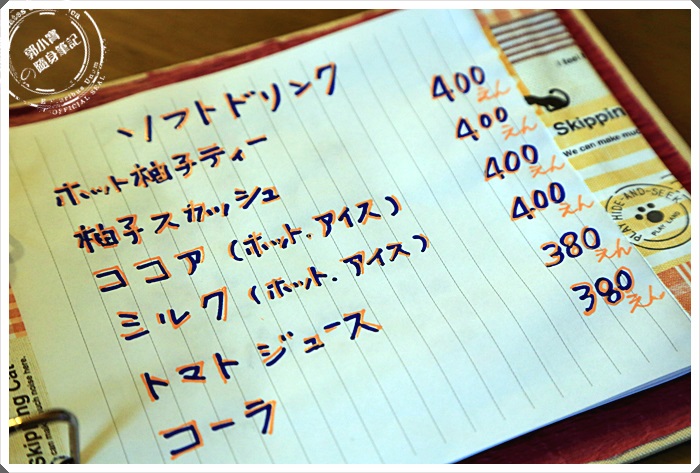 郭小寶
の隨身筆記
OFFICIAL SEAL
ソフトドリンク
ホット柚子ティー 400えん
柚子スカッシュ 400えん
ココア(ホット.アイス) 400えん
ミルク(ホット.アイス) 400えん
トマトジュース 380えん
コーラ 380えん
Skipping
We can make muc
PLAY HIDE-AND-SEEK
Skipping Cat
can make much noise here.